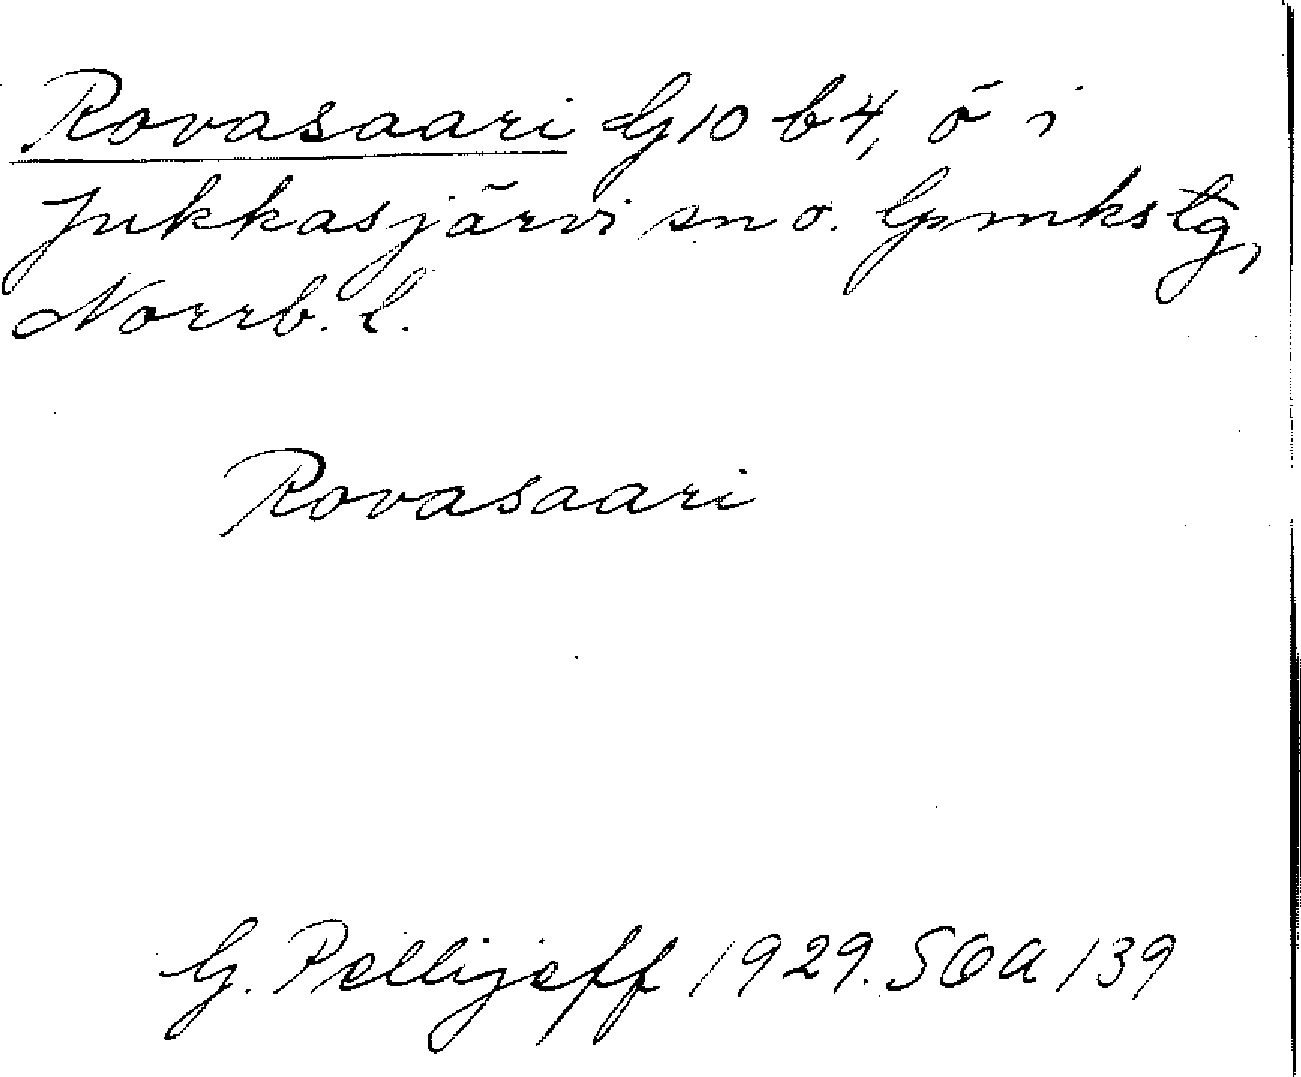 Rovasaari G10 b4, ö i
Jukkasjärvi sn o. Lpmkstg,
Norrb. l.
Rovasaari
G. Pellijeff 1929. SOA 139